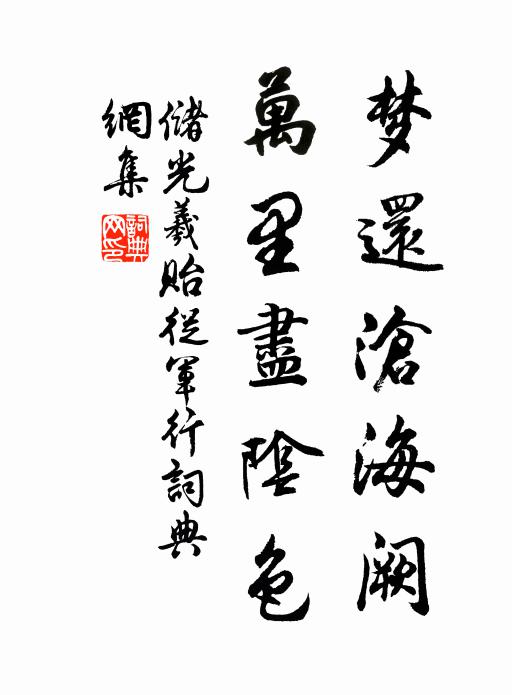 梦還滄海闕
萬里盡陰色
儲光羲貽從軍行詞典
網集
詞典
网印